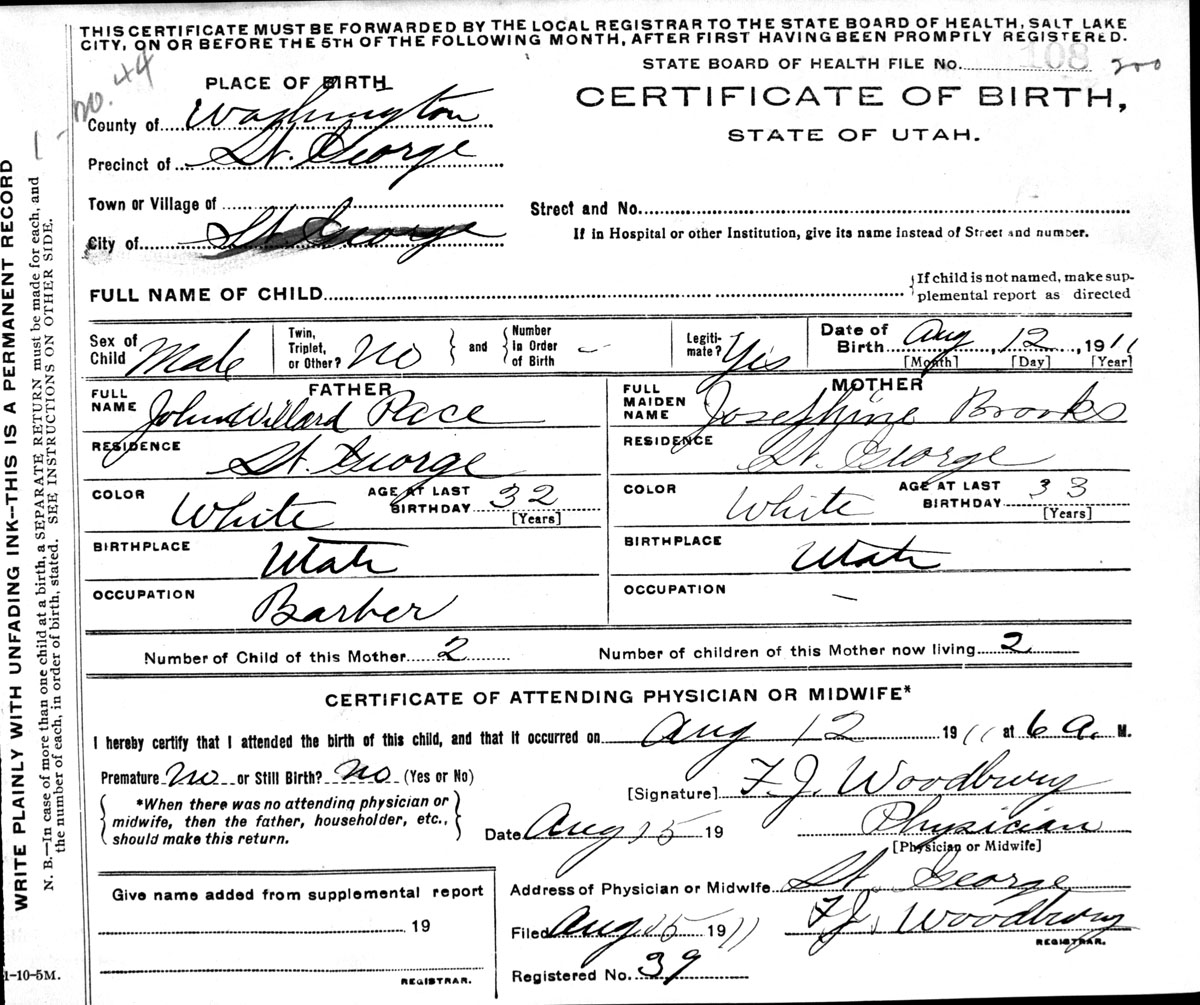 THIS CERTIFICATE MUST BE FORWARDED BY THE LOCAL REGISTRAR TO THE STATE BOARD OF HEALTH, SALT LAKE
CITY, ON OR BEFORE THE 5TH OF THE FOLLOWING MONTH, AFTER FIRST HAVING BEEN PROMPTLY REGISTERED.
no. 44
STATE BOARD OF HEALTH FILE No. 108 200
PLACE OF BIRTH
CERTIFICATE OF BIRTH,
STATE OF UTAH.
County of Washington
Precinct of St. George
Town or Village of
Street and No.
City of St George
If in Hospital or other Institution, give its name instead of Street and number.
FULL NAME OF CHILD
If child is not named, make sup-
plemental report as directed
Sex of Child Male
Twin, Triplet, or Other? No and Number In Order of Birth –
Legiti-mate? Yis
Date of Birth Aug, 12, 1911
[Month] [Day] [Year]
FATHER
FULL NAME John Willard Pace
RESIDENCE St. George
COLOR White AGE AT LAST BIRTHDAY 32
[Years]
BIRTHPLACE Utah
OCCUPATION Barber
MOTHER
FULL MAIDEN NAME Josephine Brooks
RESIDENCE St. George
COLOR White AGE AT LAST BIRTHDAY 33
[Years]
BIRTHPLACE Utah
OCCUPATION –
Number of Child of this Mother 2 Number of children of this Mother now living 2
CERTIFICATE OF ATTENDING PHYSICIAN OR MIDWIFE*
I hereby certify that I attended the birth of this child, and that it occurred on Aug 12 1911 at 6 a. M.
Premature No or Still Birth? No (Yes or No)
[Signature] F. J. Woodbury
*When there was no attending physician or
midwife, then the father, householder, etc.,
should make this return.
Date Aug 15 19
Physician
[Physician or Midwife]
Give name added from supplemental report
19
REGISTRAR.
Address of Physician or Midwife St. George
Filed Aug 15 1911 F. J. Woodbury
REGISTRAR.
Registered No. 39
WRITE PLAINLY WITH UNFADING INK--THIS IS A PERMANENT RECORD
N. B.—In case of more than one child at a birth, a SEPARATE RETURN must be made for each, and
the number of each, in order of birth, stated. SEE INSTRUCTIONS ON OTHER SIDE.
1-10-5M.